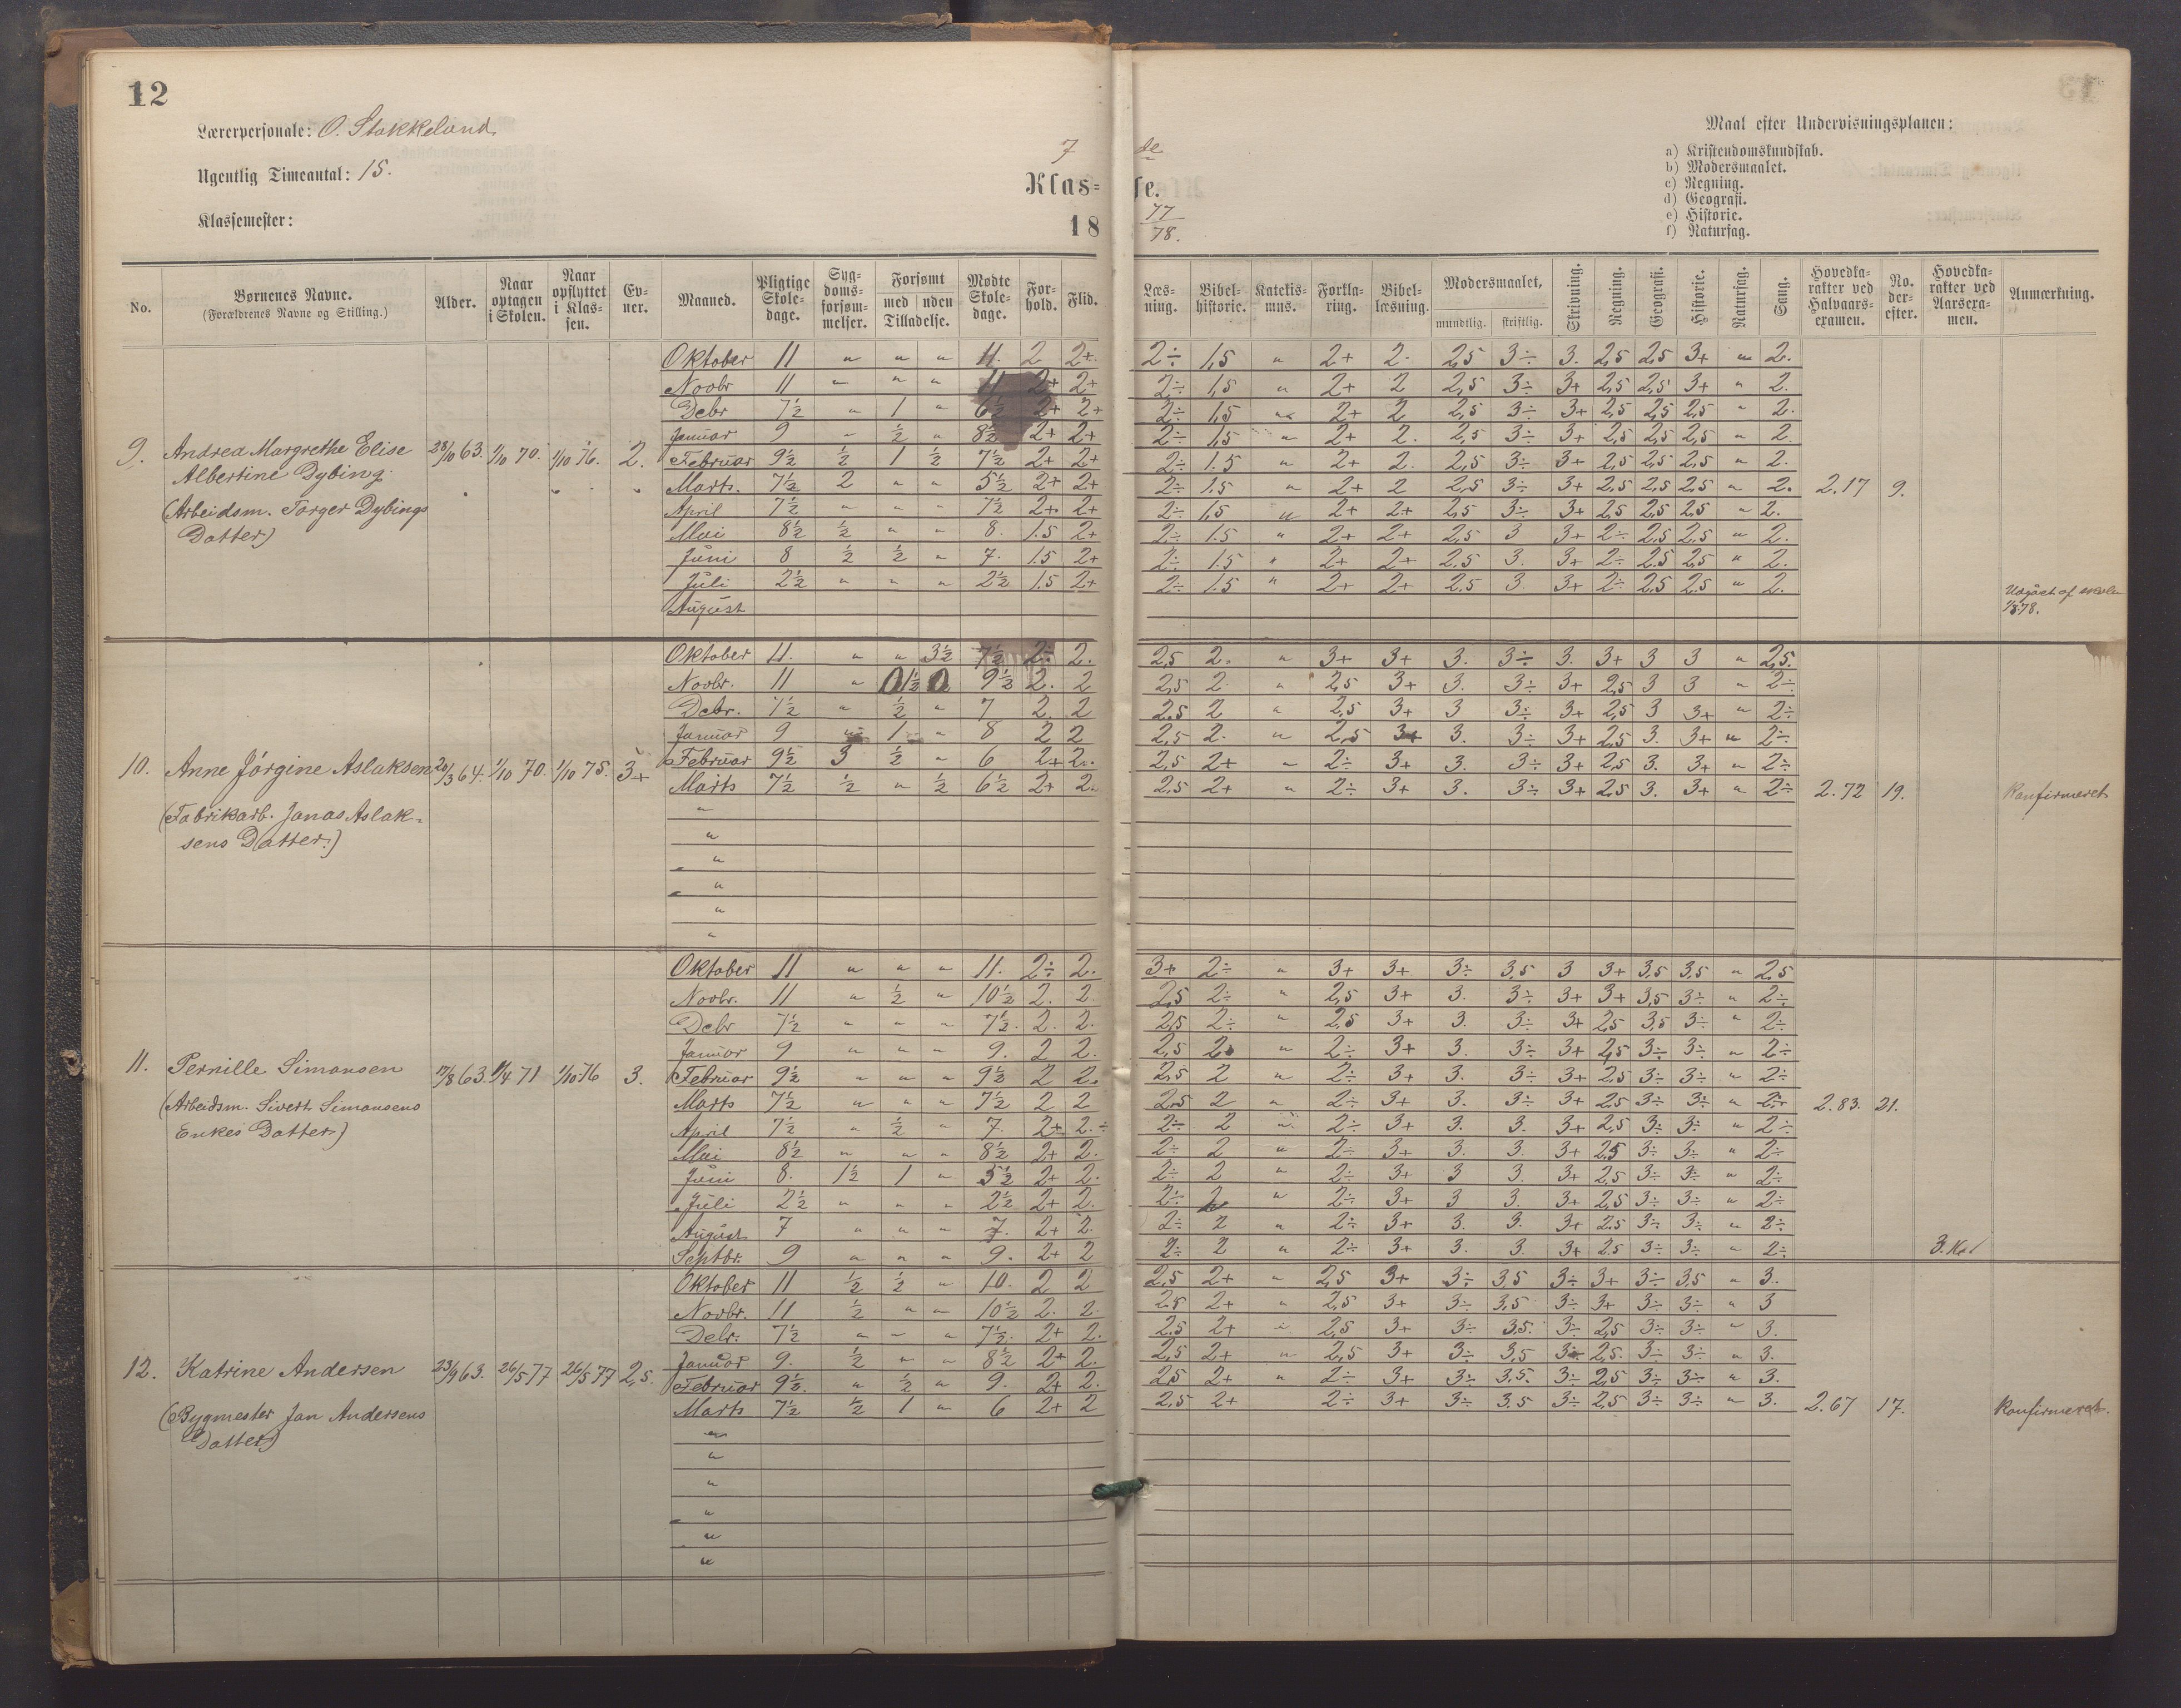 12
Lærerpersonale: O. Stokkeland.
Ugentlig Timeantal: 15.
Klassemester:
7de
Klasse.
18 77/78.
Maal efter Undervisningsplanen:
a) Kristendomskundskab.
b) Modersmaalet.
c) Regning.
d) Geografi.
e) Historie.
f) Naturfag.
No. | Børnenes Navne. (Forældrenes Navne og Stilling.) | Alder. | Naar optagen i Skolen. | Naar opflyttet i Klassen. | Evner. | Maaned. | Pligtige Skoledage. | Sygdomsforsømmelser. | Forsømt med uden Tilladelse. | Mødte Skoledage. | Forhold. | Flid. | Læsning. | Bibelhistorie. | Katekismus. | Forklaring. | Bibellæsning. | Modersmaalet, mundtlig. skriftlig. | Skrivning. | Regning. | Geografi. | Historie. | Naturfag. | Sang. | Hovedkarakter ved Halvaarsexamen. | No. derefter. | Hovedkarakter ved Aarsexamen. | Anmærkning.
9. Andrea Margrethe Elise Albertine Dybing. 28/10 63. 1/10 70. 1/10 76. 2.
(Arbeidsm. Torger Dybings Datter)
Oktober 11 " " " 11. 2 2+. 2÷ 1,5 " 2+ 2. 2,5 3÷ 3. 2,5 2,5 3+ " 2.
Novbr 11 " " " 11 2+ 2+ 2÷ 1,5 " 2+ 2 2,5 3÷ 3+ 2,5 2,5 3+ " 2.
Debr 7½ " 1 " 6½ 2+ 2+ 2÷ 1,5 " 2+ 2 2,5 3÷ 3+ 2,5 2,5 2,5 " 2.
Januar 9 " ½ " 8½ 2+ 2+ 2÷ 1,5 " 2+ 2. 2,5 3÷ 3+ 2,5 2,5 2,5 " 2.
Februar 9½ ½ 1 ½ 7½ 2+ 2+ 2÷ 1.5 " 2+ 2. 2,5 3÷ 3+ 2,5 2,5 2,5 " 2.
Marts. 7½ 2 " " 5½ 2+ 2+ 2÷ 1.5 " 2+ 2 2,5 3÷ 3+ 2,5 2,5 2,5 " 2. 2.17 9.
April 7½ " " " 7½ 2+ 2+ 2÷ 1,5 " 2+ 2+ 2,5 3÷ 3+ 2,5 2,5 2,5 " 2.
Mai 8½ ½ " " 8. 1.5 2+ 2÷ 1.5 " 2+ 2+ 2,5 3 3+ 2÷ 2,5 2,5 " 2.
Juni 8 ½ ½ " 7. 1.5 2+ 2÷ 1.5 " 2+ 2+ 2.5 3. 3+ 2÷ 2.5 2,5 " 2.
Juli 2½ " " " 2½ 1.5 2+ 2÷ 1.5 " 2+ 2+ 2,5 3 3+ 2÷ 2,5 2.5 " 2.
August
Udgået af skolen 1/8 78.
10. Anne Jørgine Aslaksen 20/3 64. 1/10 70. 1/10 75. 3+
(Fabrikarb. Jonas Aslaksens Datter.)
Oktober 11. " " 3½ 7½ 2÷ 2. 2,5 2. " 3+ 3+ 3. 3÷ 3. 3+ 3 3 " 2,5.
Novbr. 11 " 1½ 9½ 2. 2 2,5 2. " 2,5 3+ 3. 3÷ 3+ 2,5 3 3 " 2÷
Debr. 7½ " ½ " 7 2. 2 2.5 2 " 2,5 3+ 3 3÷ 3+ 2,5 3 3+ " 2÷
Januar 9 " 1 " 8 2 2 2,5 2. " 2,5 3+ 3. 3÷ 3+ 2,5 3. 3+ " 2÷
Februar 9½ 3 ½ " 6 2+ 2. 2,5 2+ " 2÷ 3+ 3. 3÷ 3+ 2,5 3. 3+ " 2÷
Marts 7½ ½ " ½ 6½ 2+ 2. 2,5 2+ " 2÷ 3+ 3. 3÷ 3+ 2,5 3. 3+ " 2÷ 2.72 19. Konfirmeret
"
"
"
"
"
"
11. Pernille Simonsen 17/8 63. 71 1/10 76 3.
(Arbeidsm. Sivert Simonsens Enkes Datter)
Oktober 11 " " " 11. 2÷ 2. 3+ 2÷ " 3+ 3+ 3÷ 3,5 3 3+ 3,5 3,5 " 2,5
Novbr. 11 " ½ " 10½ 2. 2. 2,5 2÷ " 2,5 3+ 3. 3÷ 3+ 3+ 3,5 3÷ " 2÷
Debr 7½ " " " 7½. 2. 2. 2,5 2÷ " 2,5 3+ 3. 3÷ 3+ 2,5 3,5 3÷ " 2÷
Januar 9 " " " 9. 2 2. 2,5 2. " 2÷ 3+ 3. 3÷ 3+ 2,5 3÷ 3÷ " 2÷
Februar 9½ " " " 9½ 2 2. 2,5 2 " 2÷ 3+ 3. 3÷ 3+ 2,5 3÷ 3÷ " 2÷
Marts 7½ " " " 7½ 2 2 2,5 2 " 2÷ 3+ 3. 3÷ 3+ 2,5 3÷ 3÷ " 2÷ 2.83. 21.
April 7½ " ½ " 7. 2+ 2.÷ 2÷ 2 " 2÷ 3+ 3. 3. 3+ 2,5 3÷ 3÷ " 2÷
Mai 8½ " " " 8½ 2+ 2. 2÷ 2 " 2÷ 3+ 3. 3. 3+ 2.5 3÷ 3÷ " 2÷
Juni 8. 1½ 1 " 5½ 2+ 2. 2÷ 2 " 2÷ 3+ 3 3. 3+ 2,5 3÷ 3÷ " 2÷
Juli 2½ " " " 2½ 2+ 2. 2÷ 2. " 2÷ 3+ 3 3. 3+ 2,5 3÷ 3÷ " 2÷
August 7 " " " 7. 2+ 2. 2÷ 2 " 2÷ 3+ 3. 3. 3+ 2.5 3÷ 3÷ " 2÷
Septbr. 9 " " " 9. 2+ 2 2÷ 2 " 2÷ 3+ 3. 3. 3+ 2.5 3÷ 3÷ " 2÷ 3.
12. Katrine Andersen 23/9 63. 26/5 77 26/5 77 2,5.
(Bygmester Jan Andersens Datter)
Oktober 11 ½ ½ " 10. 2 2 2,5 2+ " 2,5 3+ 3÷ 3,5 3÷ 3+ 3÷ 3,5 " 3.
Novbr. 11 ½ " " 10½ 2. 2. 2,5 2+ " 2,5 3+ 3÷ 3,5 3÷ 3+ 3÷ 3÷ " 3
Debr. 7½ " " " 7½. 2+ 2. 2.5 2+ " 2,5 3+ 3÷ 3,5. 3÷ 2,5 3÷ 3÷ " 3.
Januar 9. ½ " " 8½ 2+ 2. 2,5 2+ " 2,5 3+ 3÷ 3,5 3÷ 2,5. 3÷ 3÷ " 3.
Februar 9½. " ½ " 9. 2+ 2. 2,5 2+ " 2÷ 3+ 3÷ 3,5. 3÷ 2,5 3÷ 3÷ " 3.
Marts 7½ ½ 1 " 6 2+ 2 2,5 2+ 2÷ 3+ 3÷ 3.5 3÷ 2,5 3÷ 3÷ " 3. 2.67 17. Konfirmeret.
"
"
"
"
"
"